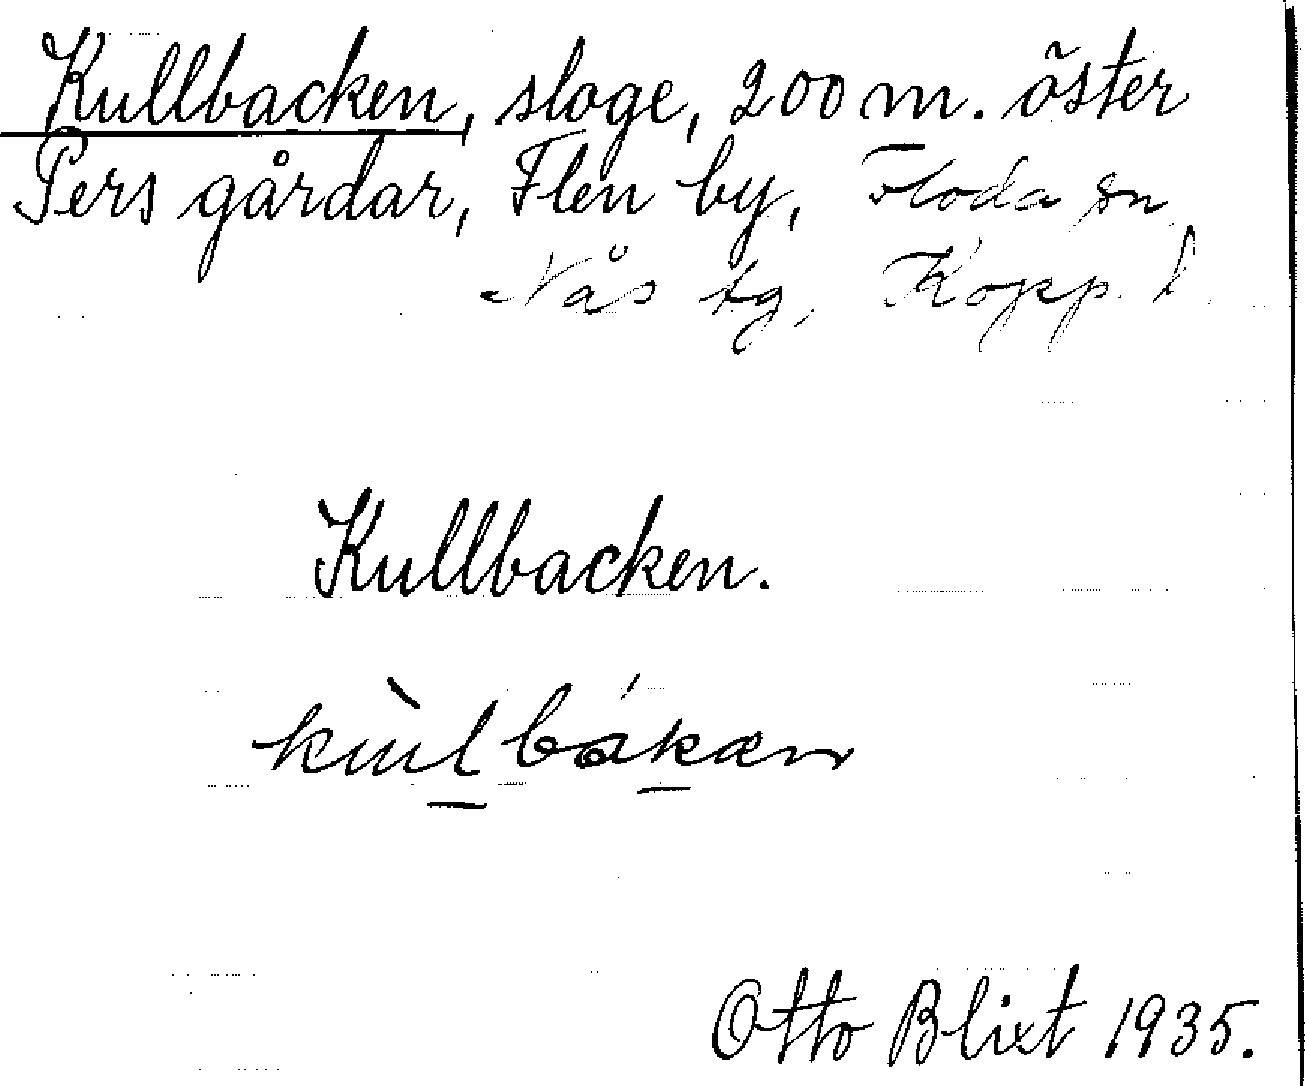 Kullbacken, sloge, 200 m. öster
Pers gårdar, Flen by, Floda sn
Nås tg, Kopp. l
Kullbacken.
kùlbákæn
Otto Blixt 1935.